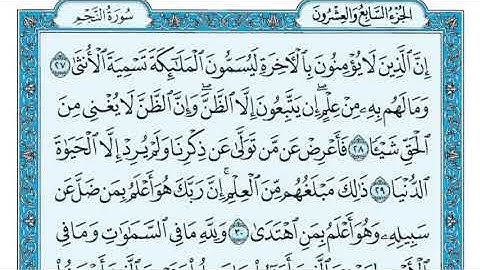 الجُزْءُ السَّابِعُ وَالعِشْرُونَ
سُورَةُ النَّجْمِ
إِنَّ الَّذِينَ لَا يُؤْمِنُونَ بِالْآخِرَةِ لَيُسَمُّونَ الْمَلَائِكَةَ تَسْمِيَةَ الْأُنْثَىٰ ٢٧
وَمَا لَهُمْ بِهِ مِنْ عِلْمٍ إِنْ يَتَّبِعُونَ إِلَّا الظَّنَّ وَإِنَّ الظَّنَّ لَا يُغْنِي مِنَ
الْحَقِّ شَيْئًا ٢٨ فَأَعْرِضْ عَنْ مَنْ تَوَلَّىٰ عَنْ ذِكْرِنَا وَلَمْ يُرِدْ إِلَّا الْحَيَوٰةَ
الدُّنْيَا ٢٩ ذَٰلِكَ مَبْلَغُهُمْ مِنَ الْعِلْمِ إِنَّ رَبَّكَ هُوَ أَعْلَمُ بِمَنْ ضَلَّ عَنْ
سَبِيلِهِ وَهُوَ أَعْلَمُ بِمَنِ اهْتَدَىٰ ٣٠ وَلِلَّهِ مَا فِي السَّمَٰوَٰتِ وَمَا فِي